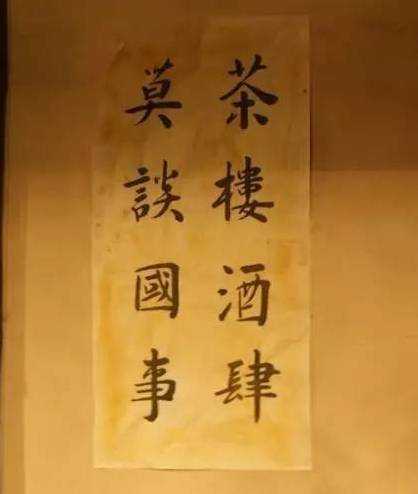 茶樓酒肆
莫談國事